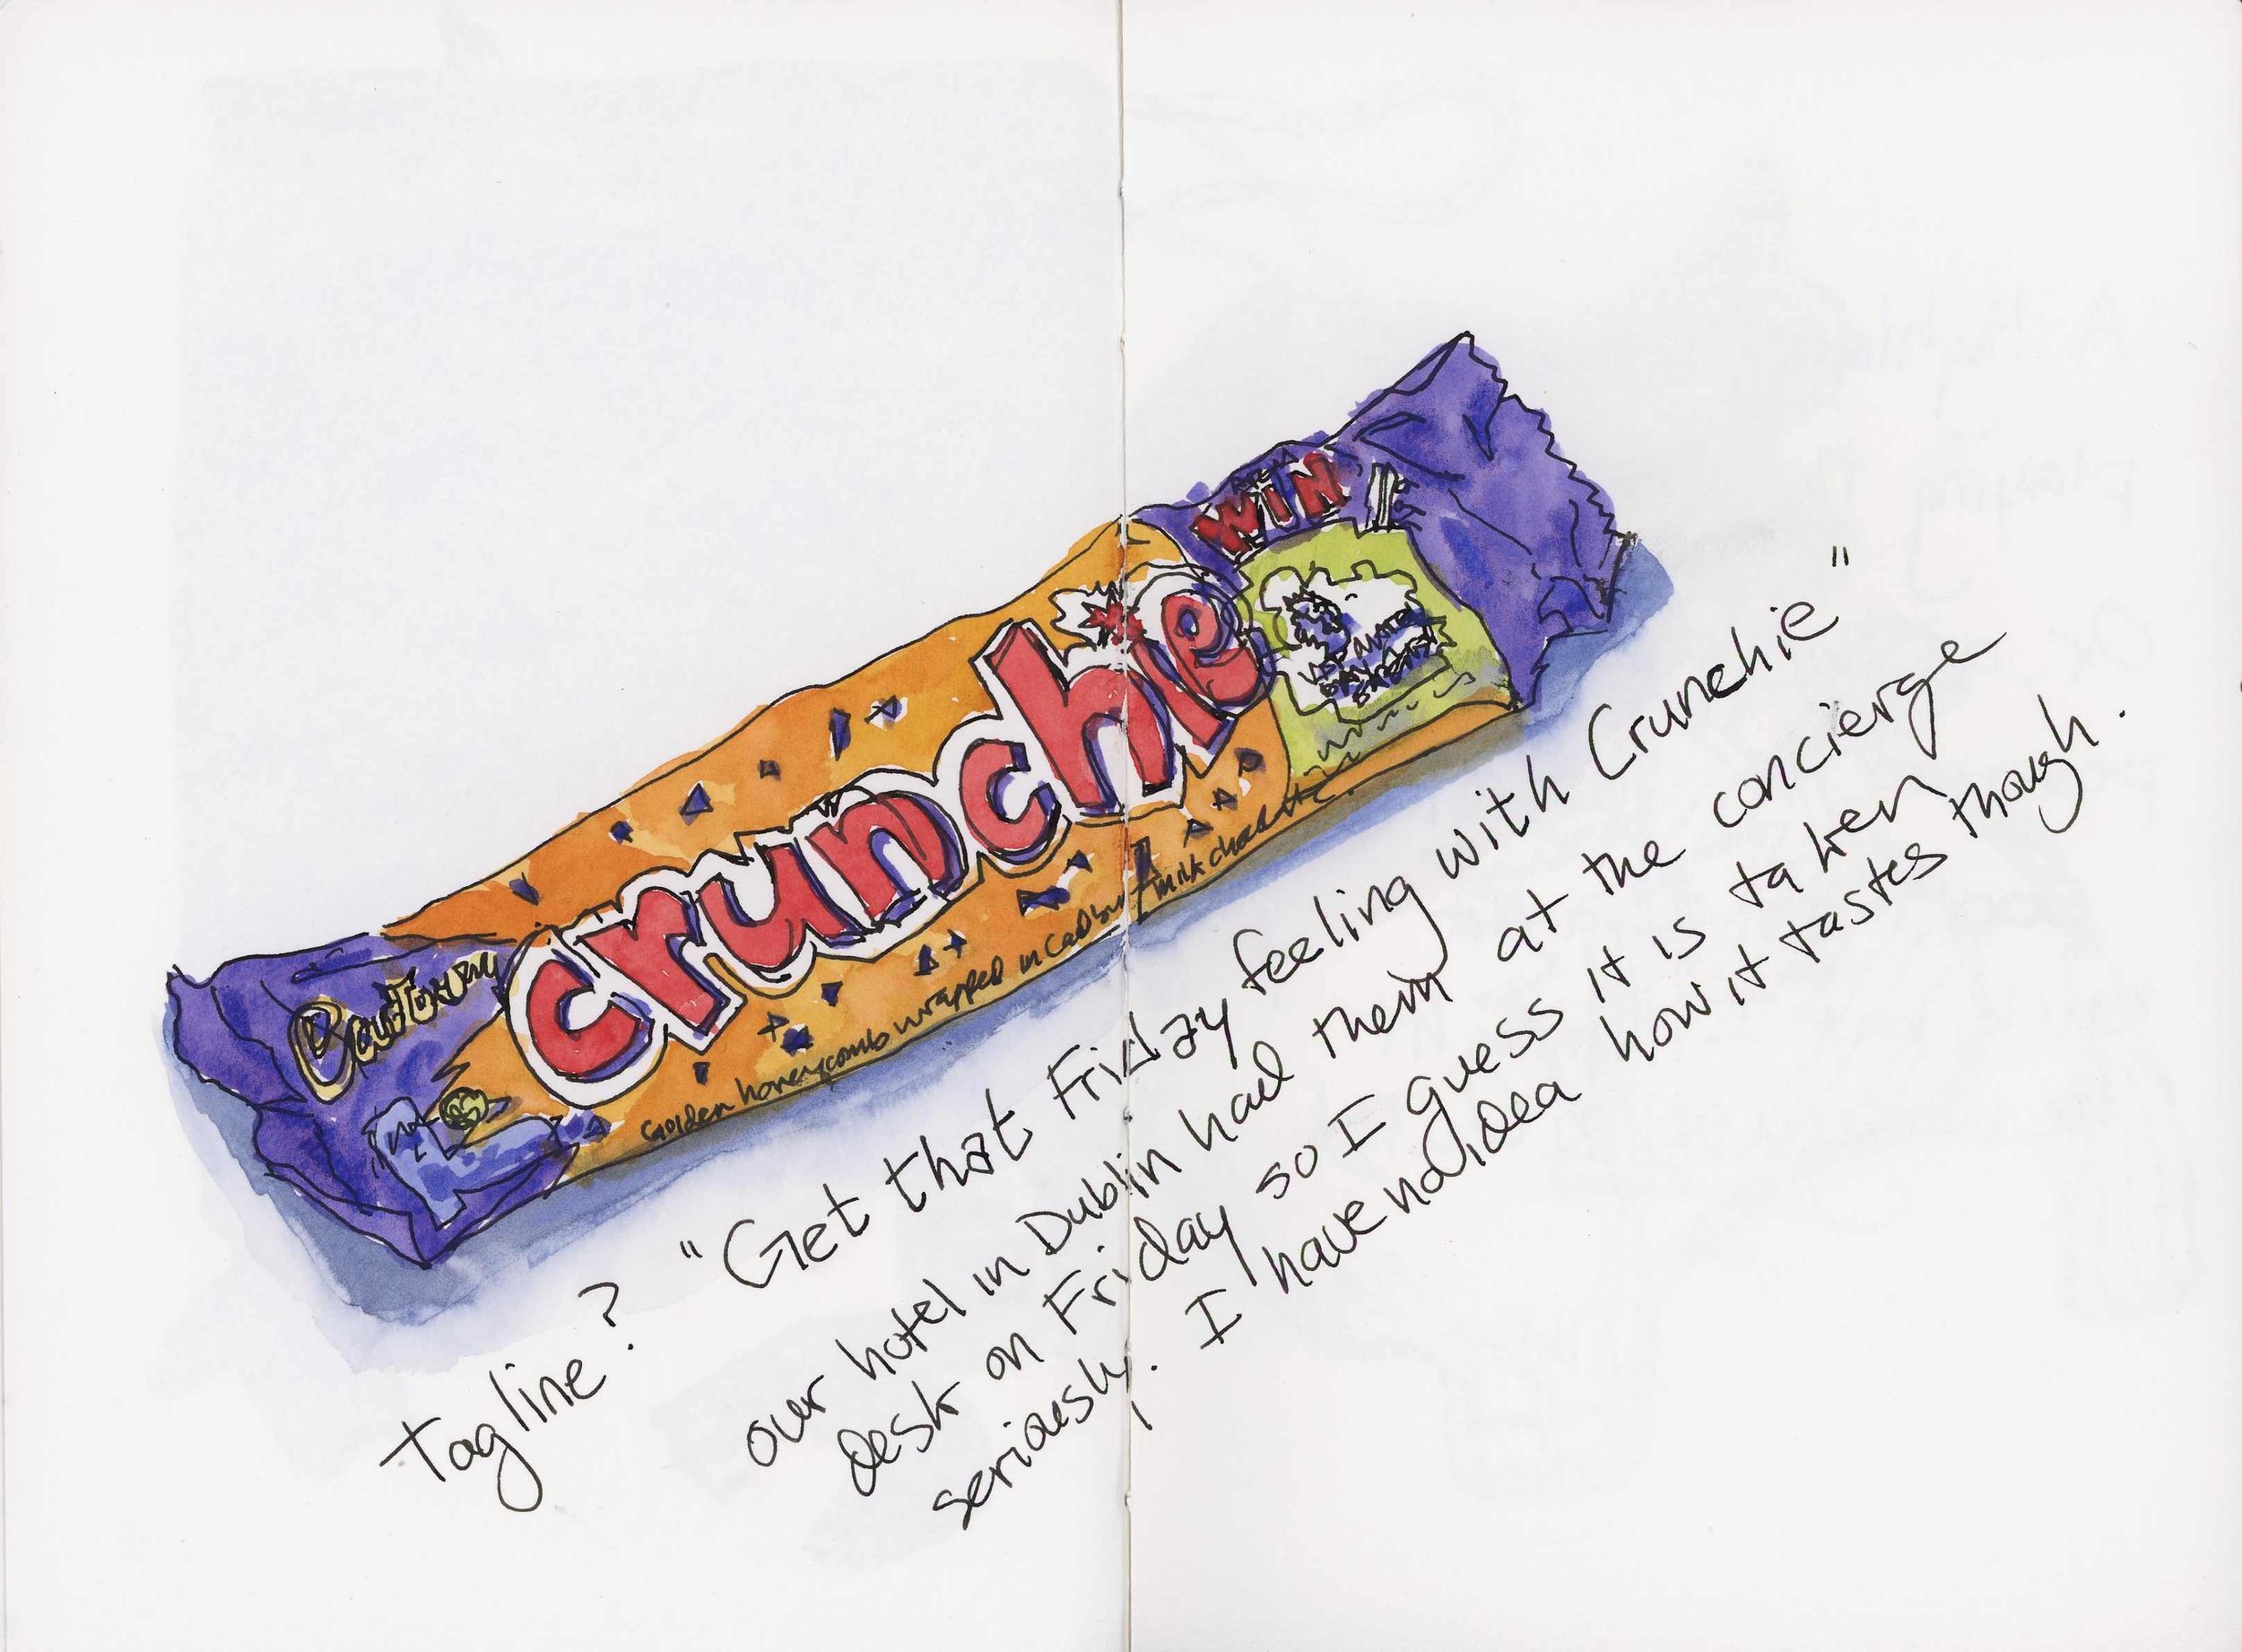 Cadbury
crunchie
WIN
Golden honeycomb wrapped in Cadbury milk chocolate.
Tagline? "Get that Friday feeling with Crunchie"
our hotel in Dublin had them at the concierge
desk on Friday so I guess it is taken
seriously. I have no idea how it tastes though.